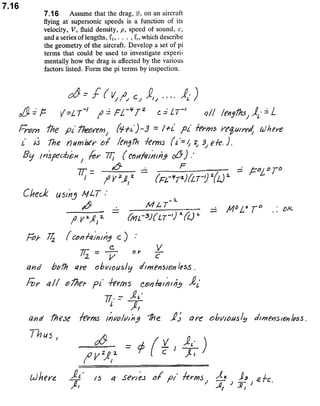 7.16
7.16 Assume that the drag, 𝒟, on an aircraft
flying at supersonic speeds is a function of its
velocity, V, fluid density, ρ, speed of sound, c,
and a series of lengths, ℓ₁, . . . , ℓᵢ, which describe
the geometry of the aircraft. Develop a set of pi
terms that could be used to investigate experi-
mentally how the drag is affected by the various
factors listed. Form the pi terms by inspection.
𝒟 = f (V, ρ, c, ℓ₁, .... ℓᵢ)
𝒟 ≐ F V ≐ LT⁻¹ ρ ≐ FL⁻⁴T² c ≐ LT⁻¹ all lengths, ℓᵢ ≐ L
From the pi theorem, (4+i)-3 = 1+i pi terms required, where
i is the number of length terms (i=1, 2, 3, etc.).
By inspection, for π₁ (containing 𝒟):
π₁ = 𝒟 / ρV²ℓ₁² ≐ F / (FL⁻⁴T²)(LT⁻¹)²(L)² ≐ F⁰L⁰T⁰
Check using MLT:
𝒟 / ρV²ℓ₁² ≐ MLT⁻² / (ML⁻³)(LT⁻¹)²(L)² ≐ M⁰L⁰T⁰ ∴ OK
For π₂ (containing c):
π₂ = c/V or V/c
and both are obviously dimensionless.
For all other pi terms containing ℓᵢ
πᵢ = ℓᵢ/ℓ₁
and these terms involving the ℓᵢ's are obviously dimensionless.
Thus,
𝒟 / ρV²ℓ₁² = φ (V/c, ℓᵢ/ℓ₁)
where ℓᵢ/ℓ₁ is a series of pi terms, ℓ₂/ℓ₁, ℓ₃/ℓ₁, etc.